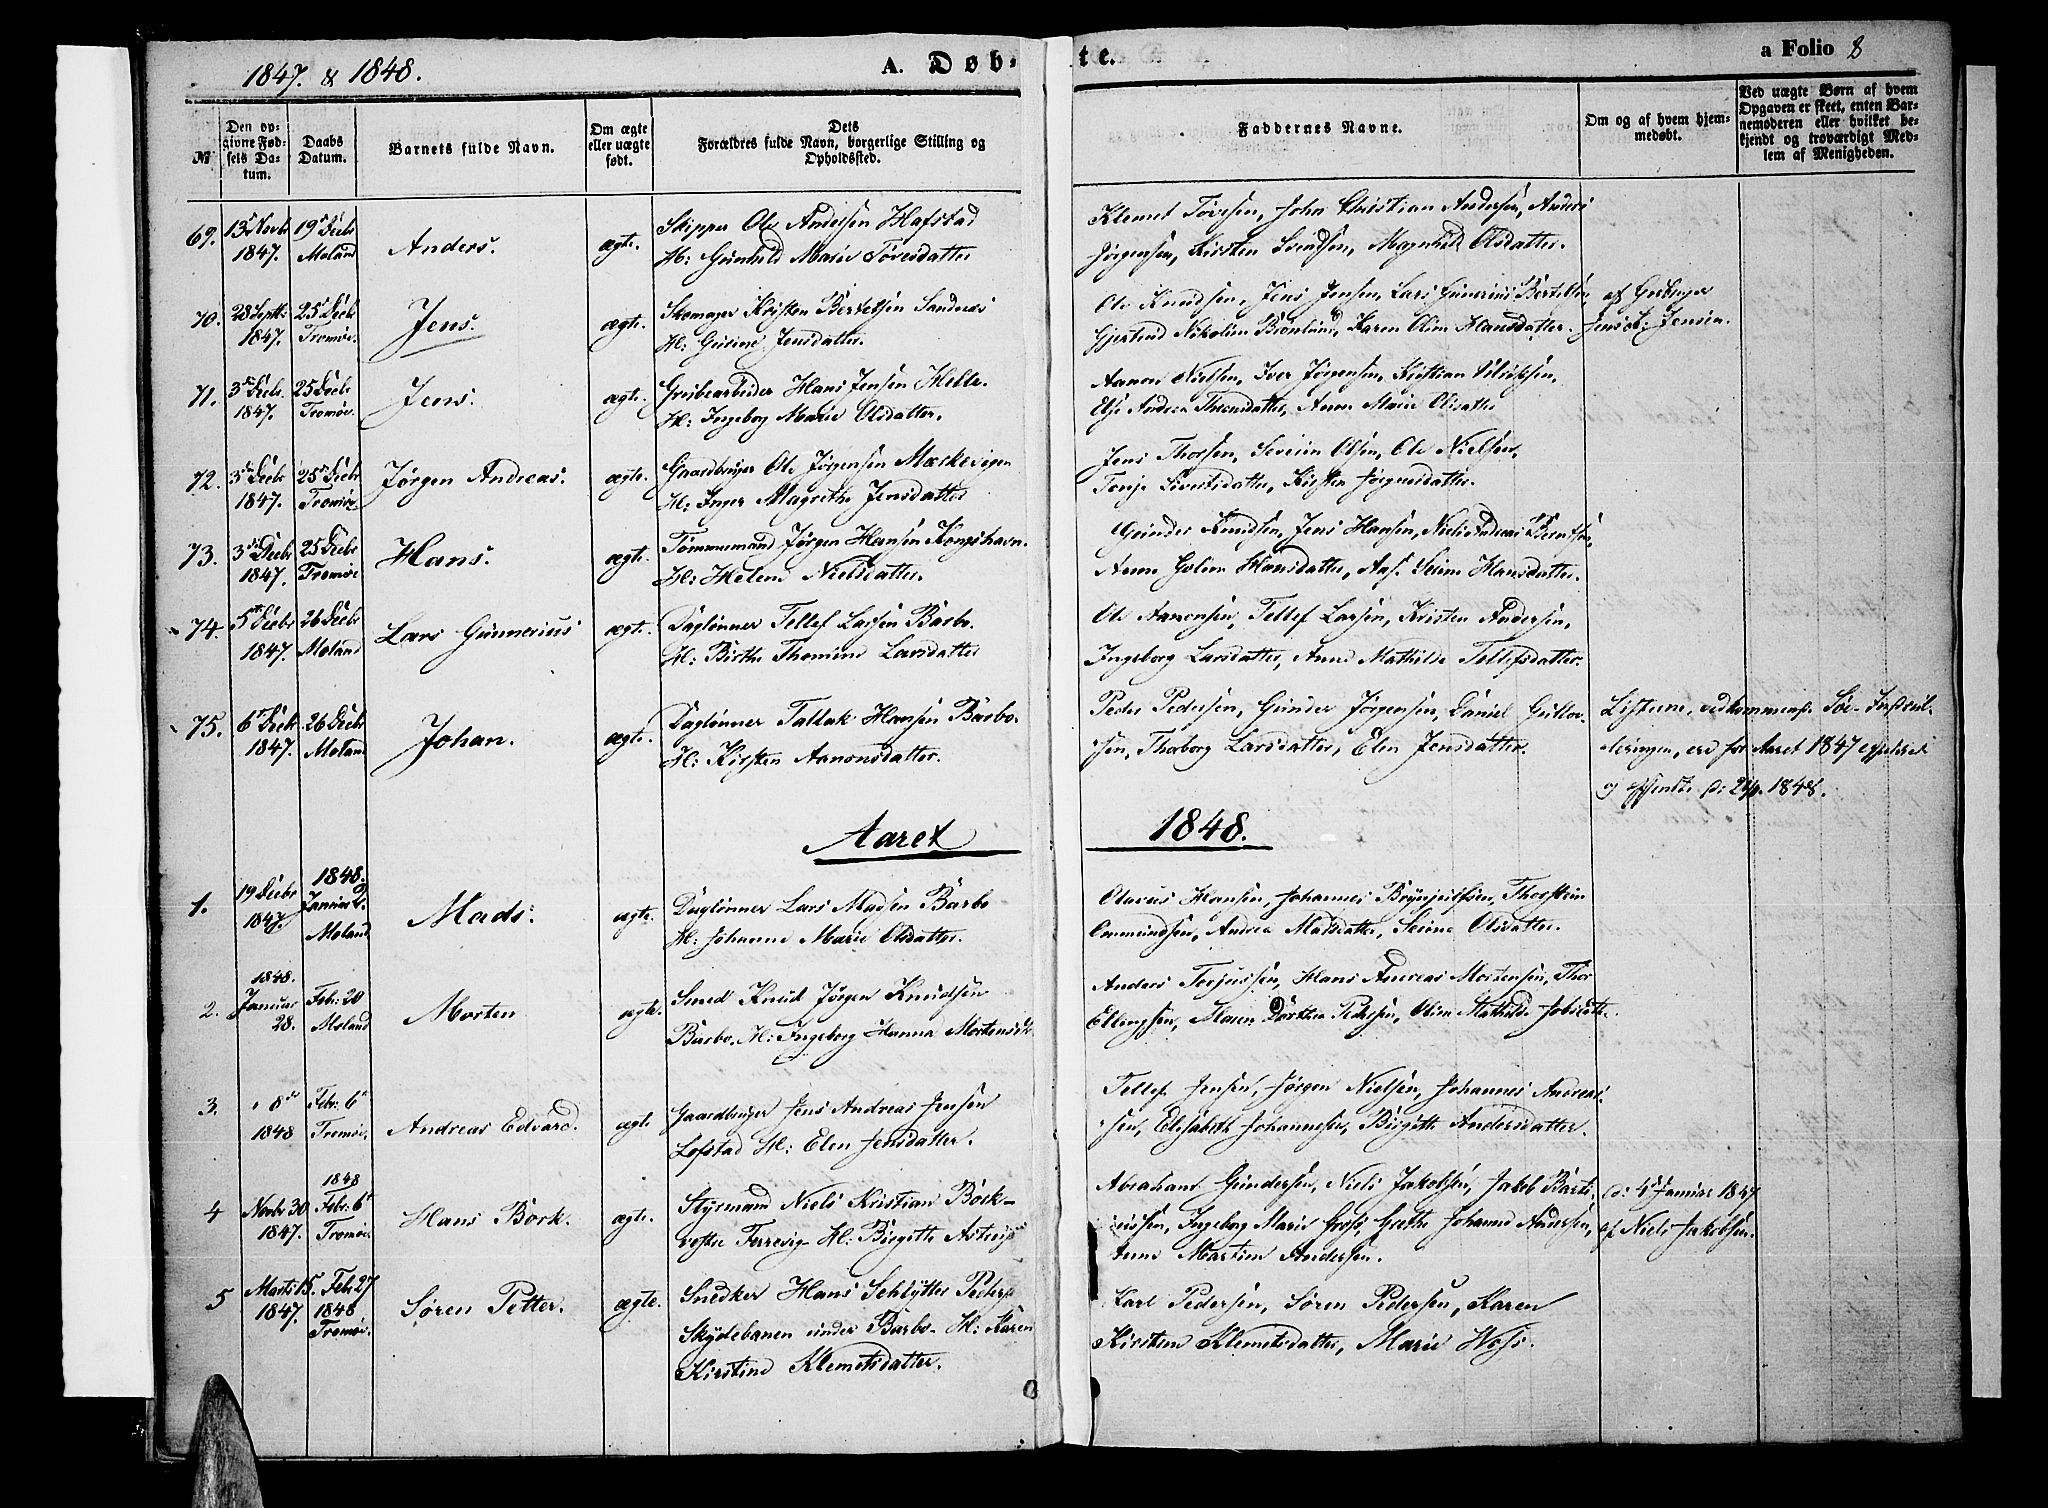 1847. & 1848.
A. Døbte.
a Folio 8
№
Den opgivne Fødsels Datum.
Daabs Datum.
Barnets fulde Navn.
Om ægte eller uægte født.
Dets Forældres fulde Navn, borgerlige Stilling og Opholdssted.
Faddernes Navne.
Om og af hvem hjemmedøbt.
Ved uægte Børn af hvem Opgaven er skeet, enten Barnemoderen eller hvilket bekjendt og troværdigt Medlem af Menigheden.
69. 13 Novbr 1847. 19 Decbr Moland
Anders.
ægte.
Skipper Ole Andersen Hafstad
H: Gunhild Marie Tovesdatter
Klemet Tovesen, John Christian Andersen, Anders
Jørgensen, Kirsten Svendsen, Magnhild Olsdatter.
70. 28 Septb: 1847. 25 Decbr Tromøe.
Jens.
ægte.
Skomager Kristen Berntsen Sandnes
H: Gusine Jensdatter.
Ole Knudsen, Jens Jensen, Lars Gunerius Bertelsen,
Gjertrud Nikoline Brønlund, Karen Oline Hansdatter.
af
Jensen.
71. 3 Decbr. 1847. 25 Decbr Tromøe.
Jens.
ægte.
Grubearbeider Hans Jensen Helle.
H: Ingeborg Marie Olsdatter.
Aanon Nielsen, Iver Jørgensen, Kristian
Else Andrea Thomsdatter, Anne Marie Olsdatter
72. 3 Decbr 1847. 25 Decbr Tromøe
Jørgen Andreas.
ægte.
Gaardbruger Ole Jørgensen Mærkevigen
H: Inger Magrethe Jensdatter
Jens Thorsen, Severin Olsen, Ole Nielsen,
Tonje Sivertsdatter, Kirsten Jørgensdatter.
73. 3 Decbr 1847. 25 Decbr Tromøe
Hans.
ægte.
Tømmermand Jørgen Hansen Kongshavn.
H: Helene Nielsdatter.
Gunder Knudsen, Jens Hansen, Niels Andreas Berntsen,
Anne Goline Hansdatter, Aas. Serine Hansdatter.
74. 5 Decbr 1847. 26 Decbr Moland
Lars Gunnerius
ægte.
Daglønner Tellef Larsen Barbo.
H: Birthe Thomine Larsdatter
Ole Aanonsen, Tellef Larsen, Kristen Andersen,
Ingeborg Larsdatter, Anne Mathilde Tellefsdatter.
75. 6 Decbr 1847. 26 Decbr Moland
Johan.
ægte.
Daglønner Tallak Hansen Barbo.
H: Kirsten Aanonsdatter.
Peder Pedersen, Gunder Jørgensen, Daniel
sen, Thorborg Larsdatter, Elen Jensdatter.
Listerne, vedkommende Søe-Indrul-
leringen, ere for Aaret 1847
og 1848.
Aaret 1848.
1. 19 Decbr 1847. 1848. Januar 2. Moland
Mads.
ægte.
Daglønner Lars Madsen Barbo
H: Johanne Marie Olsdatter.
Olaves Hansen, Johannes Brynjulfsen, Thorstein
Ommundsen, Andrea Madsdatter, Serine Olsdatter.
2. 1848. Januar 28. Febr: 20 Moland
Morten
ægte.
Smed Knud Jørgen Knudsen
Barbo. H: Ingeborg Hanna Mortensdtr
Anders Torjussen, Hans Andreas Mortensen, Thor
Ellingsen, Maren Dorthea Pedersen, Oline Mathilde
3. 8de 1848 Febr: 6 Tromøe.
Andreas Edvard.
ægte
Gaardbruger Jens Andreas Jensen
Lofstad H: Elen Jensdatter.
Tellef Jensen, Jørgen Nielsen, Johannes Andreas-
sen, Elisabeth Johannesen, Birgitte Andersdatter.
4 Novbr 30 1847. 1848 Febr: 6 Tromøe.
Hans Bork.
ægte.
Styrmand Niels Kristian Bork-
Færevig- H: Birgitte
Abraham Gundersen, Niels Jakobsen, Jakob
Ingeborg Marie Gross, Grethe Johanne Andersen,
Anne Martine Andersen.
d: 4 Januar 1847
af Niels Jakobsen.
5 Marts 15. 1847. Feb. 27 1848 Tromøe.
Søren Petter.
ægte.
Snedker Hans Schlytter Peders
Skydebanen under Barbo- H: Karen
Kirstine Klemetsdatter.
Karl Pedersen, Søren Pedersen, Karen
Kirstine Klemetsdatter, Marie Woss.